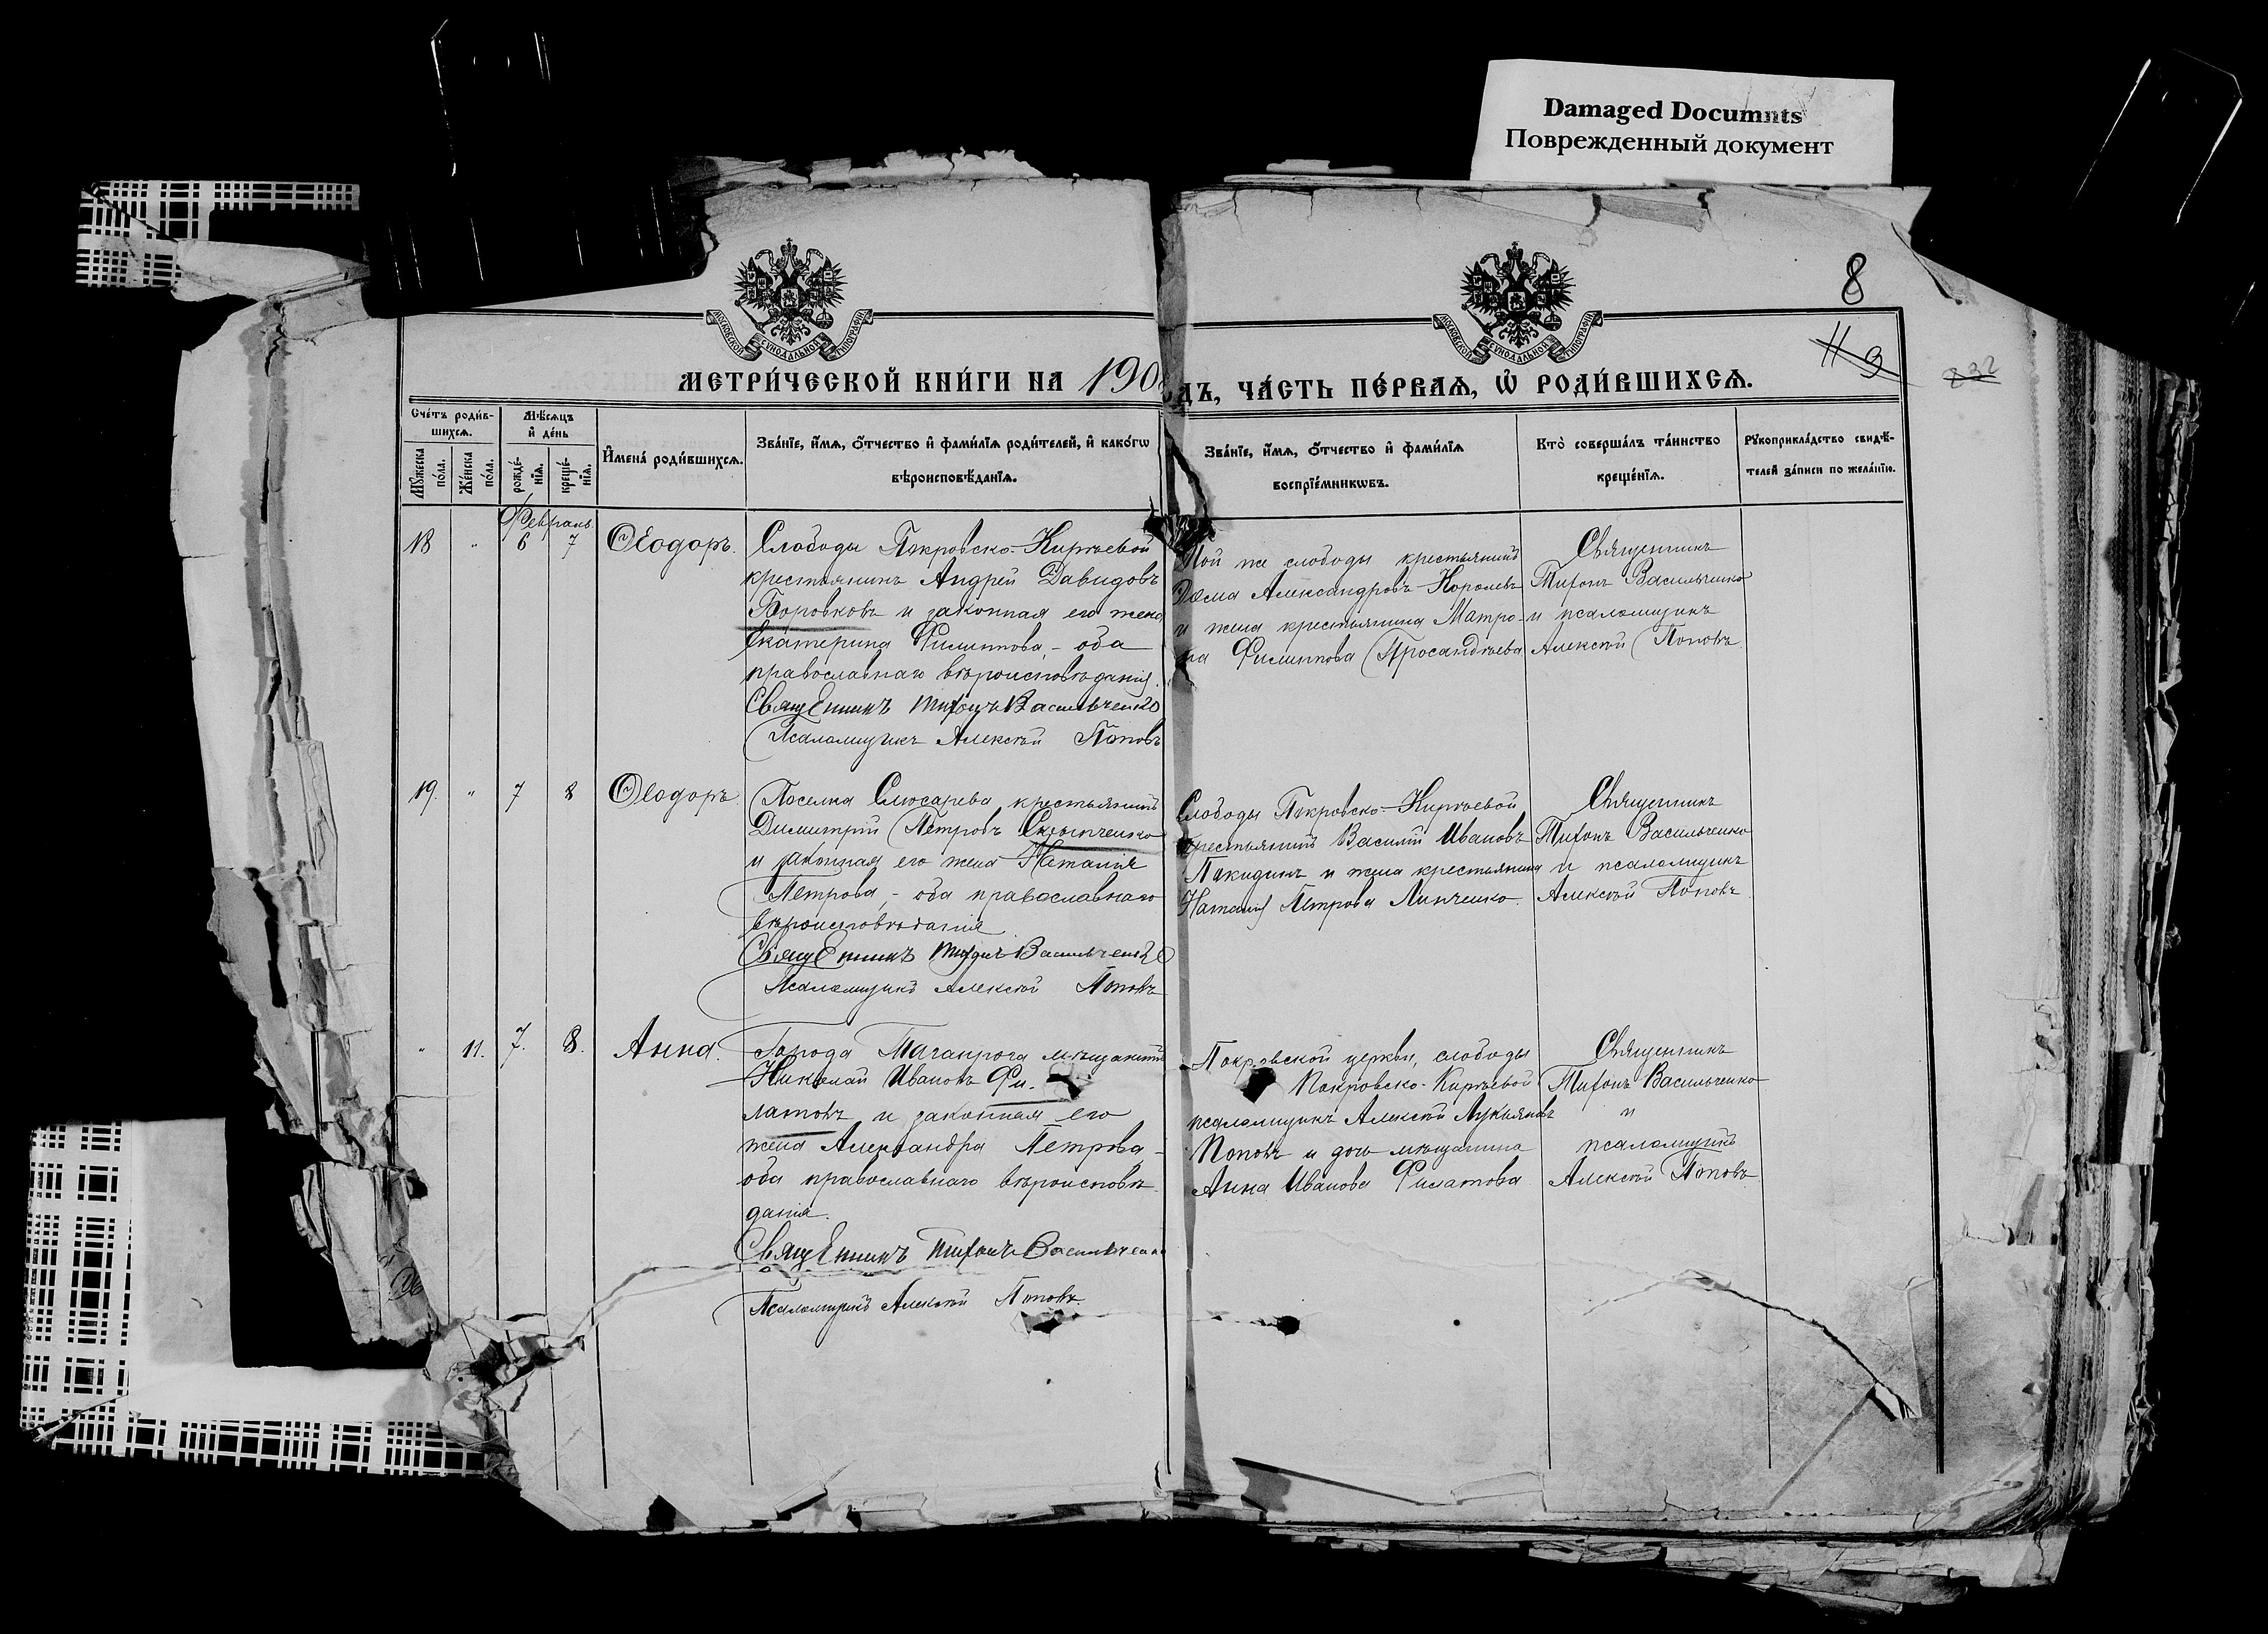 Damaged Documnts
Поврежденный документ
8
11 9
232
МОСКОВСКОЙ СѴНОДАЛЬНОЙ ТИПОГРАФІИ
МОСКОВСКОЙ СѴНОДАЛЬНОЙ ТИПОГРАФІИ
МЕТРИ́ЧЕСКОЙ КНИ́ГИ НА 190
ДЪ, ЧА́СТЬ ПЕ́РВАѦ, Ѡ҆ РОДИ́ВШИХСѦ.
Сче́тъ роди́в-
шихсѧ.
Мѣ́сѧцъ
и҆ де́нь
Мꙋ́жеска по́ла.
Же́нска по́ла.
рожде́-
нїѧ.
креще́-
нїѧ.
И҆мена̀ роди́вшихсѧ.
Зва́нїе, и҆́мѧ, ѻ҆́тчество и҆ фами́лїѧ роди́телей, и҆ како́гѡ
вѣроисповѣ́данїѧ.
Зва́нїе, и҆́мѧ, ѻ҆́тчество и҆ фами́лїѧ
воспрїе́мникѡвъ.
Кто̀ соверша́лъ та́инство
креще́нїѧ.
Рꙋкоприкла́дство свидѣ́-
телей за́писи по жела́нїю.
Февраль
18 " 6 7 Ѳеодоръ.
Слободы Покровско-Киреевой
крестьянинъ Андрей Давидовъ
Боровковъ и законная его жена
Екатерина Филиппова, - оба
православнаго вѣроисповѣданія.
Священникъ Тихонъ Васильченко
Псаломщикъ Алексѣй Поповъ
Той же слободы крестьянинъ
Александровъ Королевъ
и жена крестьянина Матро-
на Филиппова
Священникъ
Тихонъ Васильченко
и псаломщикъ
Алексѣй Поповъ
19. " 7 8 Ѳеодоръ.
Поселка Слюсарева крестьянинъ
Димитрій Петровъ
и законная его жена Наталія
Петрова, - оба православнаго
вѣроисповѣданія
Священникъ Тихонъ Васильченко
Псаломщикъ Алексѣй Поповъ
Слободы Покровско-Киреевой
крестьянинъ Василій Ивановъ
и жена крестьянина
Наталія Петрова Линченко.
Священникъ
Тихонъ Васильченко
и псаломщикъ
Алексѣй Поповъ
" 11. 7. 8. Анна.
Города Таганрога мѣщанинъ
Николай Ивановъ Фи-
латовъ и законная его
жена Александра Петрова -
оба православнаго вѣроисповѣ-
данія.
Священникъ Тихонъ Васильченко
Псаломщикъ Алексѣй Поповъ.
Покровской церкви, слободы
Покровско-Киреевой
псаломщикъ Алексѣй Лукьяновъ
Поповъ и дочь мѣщанина
Анна Иванова Филатова
Священникъ
Тихонъ Васильченко
и
псаломщикъ
Алексѣй Поповъ